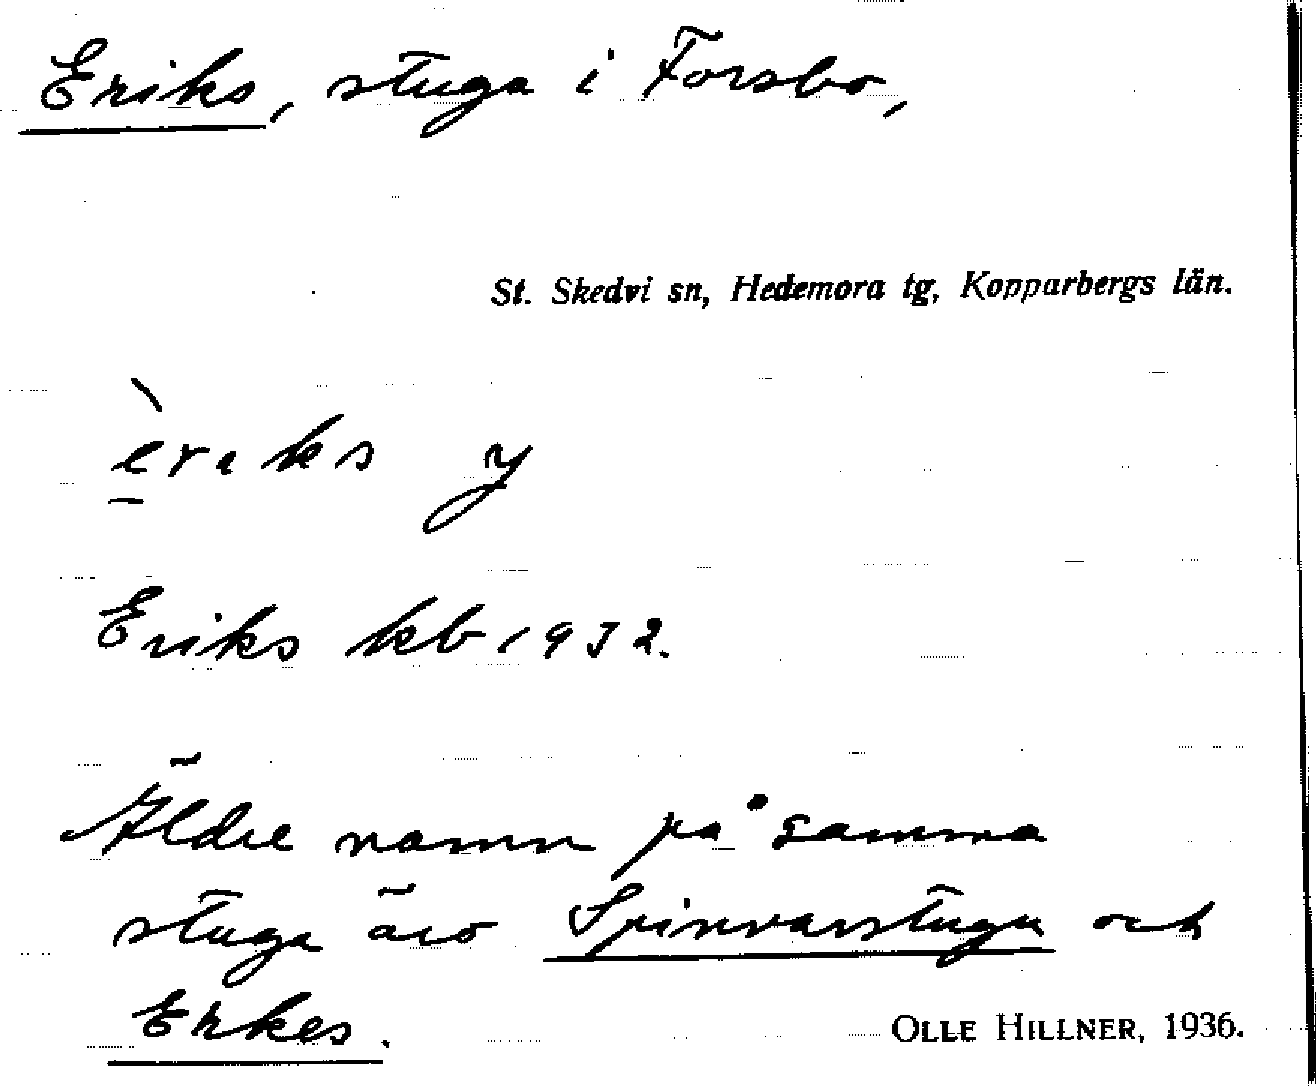 Eriks, stuga i Forsbo,
St. Skedvi sn, Hedemora tg, Kopparbergs län.
èrıks y
Eriks kb 1932.
Äldre namn på samma
stuga äro Spinnarstugu och
Erkes.
OLLE HILLNER, 1936.